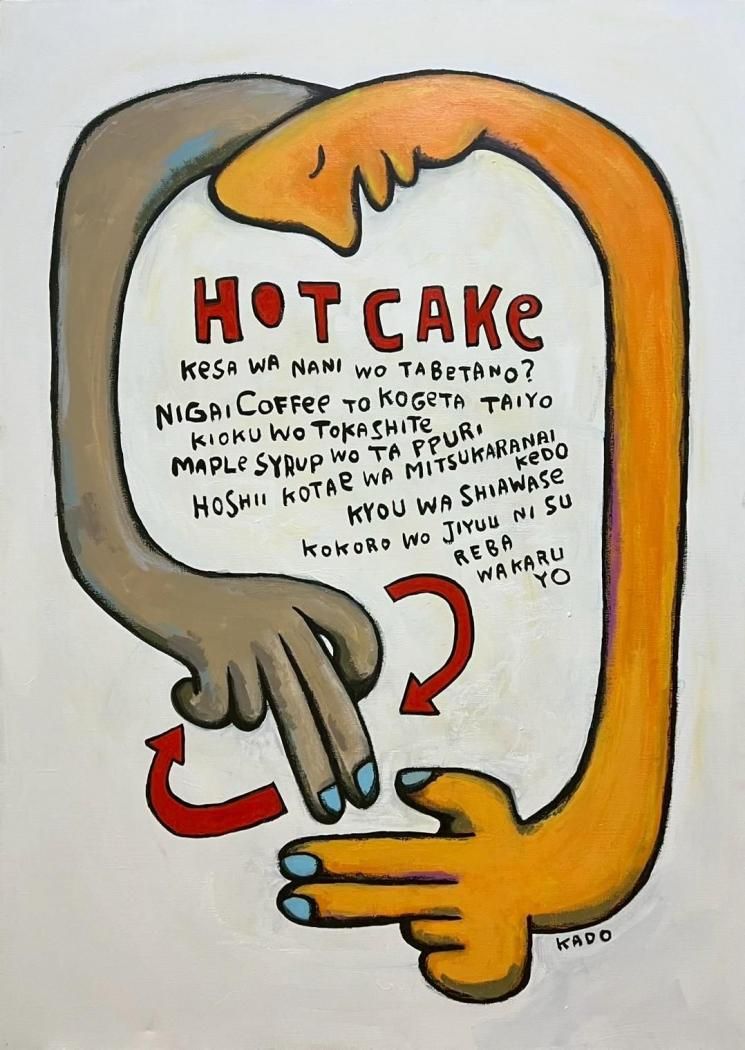 HOT CAKe
KeSA WA NANI WO TABeTANO?
NIGAI COFFee TO KOGeTA TAIYO
KIOKU WO TOKASHITe
MAPLe SYRUP WO TA PPURI
HOSHII KOTAE WA MITSUKARANAI
KeDO
KYOU WA SHIAWASe
KOKORO WO JIYUU NI SU
REBA
WAKARU
YO
KADO